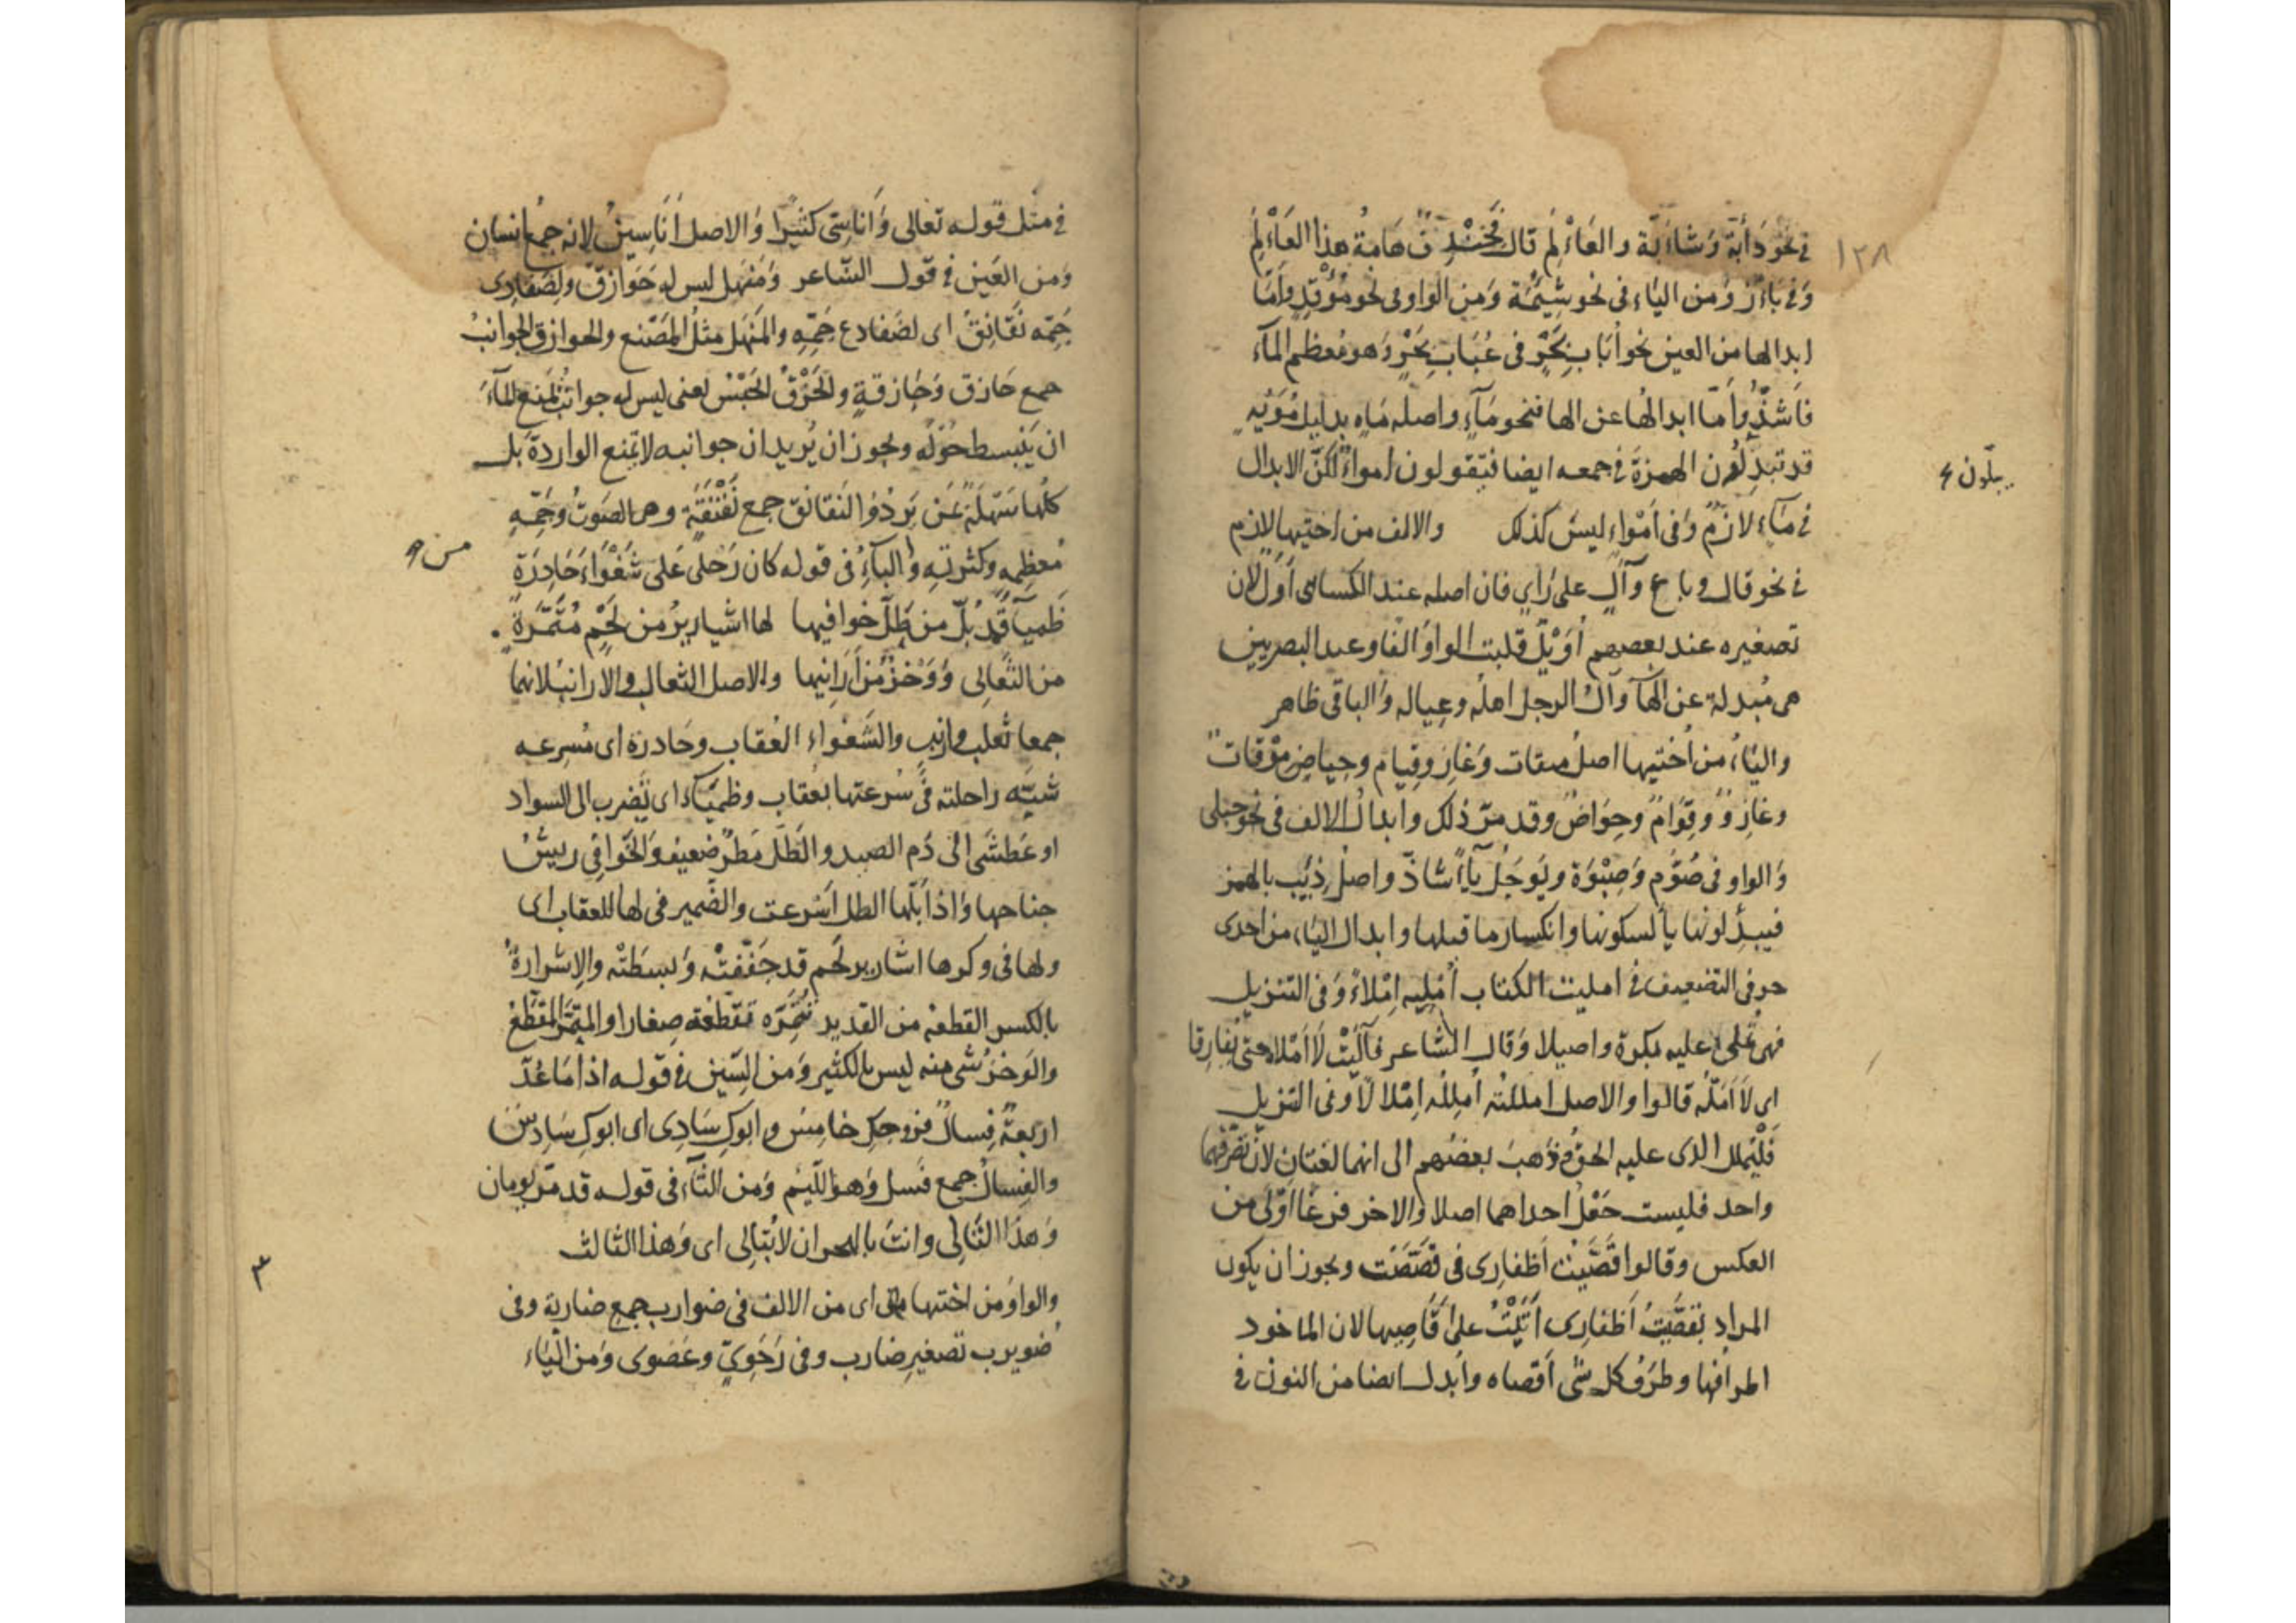 ١٢٨
في نحو دَأبّة وَشَأبّة والعَأْلَمِ قال فَخِنْدِفٌ هَامةُ هذا العَأْلَمِ
وَفي بَأْز وَمن الياء في نحو شِئْمَة وَمن الواو في نحو مُؤْقِد وأمّا
ابدالها من العين نحو أبَاب بَحْرٍ في عُبَاب بَحْرٍ وَهو مُعظم المآء
فَاَشذّ وأمّا ابدالُها عن الها فنحو مَآءٍ واصله مَاه بدليل مُوَيْهٍ
قد تبدلون الهمزة في جمعه ايضا فيقولون امواءٌ لكنّ الابدال
يبدّلون
في مَآء لازمٌ وَفي اَمْواءٍ ليسَ كذلك والالف من اختيها لازم
في نحو قال و باع وآلٍ على رَايٍ فان اصله عند الكسائى اَوَلٌ لان
تصغيره عند بعضهم أُوَيْلٌ قلبت الواوُ الفًا وعند البصريين
هى مُبدلة عن الهآ وآلُ الرجل اهلُه وعياله وَالباقى ظاهر
والياءُ من أختيها اصلُ ميقات وَغازٍ وقيام وحياضٍ مِوْقاتٌ
وغازِوٌ وقِوَامٌ وَحِوَاضٌ وقد مرّ ذلك وابدالُ الالف في نحو حبلى
وَالواو في صُوَّم وَصِبْوَة ويَوجَلُ يَاءً شاذّ واصل ذِئيب بالهمز
فيبدلونها يأ لسكونها وانكسار ما قبلها وابدال الياء من احدى
حرفى التضعيف في امليت الكتاب اُمْلِيه اِمْلاءً وَفي التنزيل
فهى تملى عليه بكرة واصيلا وَقال الشاعر فآليْتُ لَا اَمْلاه حتى يُفارقا
اى لَا اَمَلُّه قالوا والاصل امللتُه اُمِلِلُه اِمْلالًا وَفي التنزيل
فَلْيُملل الذى عليه الحقُّ وَذهبَ بعضُهم الى انهما لغتانِ لانّ تصرّفهما
واحد فليست جَعْلُ احداهما اصلا وَالاخر فرعًا اَوْلَى من
العكس وقالوا قَصَّيْتُ اَظفارى فى قصَصْت ويجوز ان يكون
المراد بقَصَّيْتُ اَظفارى اَتَيْتُ على اَقَاصيها لان الماخوذ
اطرافها وطرَفُ كل شى اَقصاه وابدل ايضا من النون في
في مثل قوله تعالى وَاَناسِيّ كثيرًا وَالاصل اَنَاسِينُ لانه جمعُ انسان
وَمن العَين في قول الشّاعر وَمَنْهَل ليس له حَوَازقٌ ولِضَفَادِى
جَمِّه نَقَانِقُ اى لضَفادع جَمِّهِ والمَنهَل مثلُ المَصْنع والحوازق الجوانبُ
جمع حَازق وَحَازقةٍ والحَزْقُ الحَبْسُ يعنى ليس له جوانبُ تمنع المآءَ
ان يَنبسط حَوْلَه ويجوز ان يُريد ان جوانبه لا تمنع الواردةَ بل
كلُّها سَهْلَةٌ عَن يَردُ وَالنَقانق جمع نَقْنَقَةٍ وهى الصَوتُ وجَمِّهِ
مُعظمِه وكثرتِه وَالباءِ في قوله كان رَحْلى عَلى شَغْوَاءَ حَادِرَةٍ
من
ظَميآءَ قد بُلّ من طَلّ خوافيها لها اشاريرُ من لَحْمٍ مُتَمَّرَةٍ
من الثَّعَالِى وَوَخْزٌ من اَرَانِيها والاصل الثعالب والارانبُ لانهما
جمعا ثعلب وارنبٍ والشَغْواء العُقاب وحَادرة اى مُسرعه
شبّه راحلته في سُرعتها بعُقاب وظميَاء اى يَضرب الى السواد
او عَطشَى الى دَم الصيد والطَلّ مَطرٌ ضعيفٌ وَالخَوافى ريشُ
جناحها وَاذا بَلّها الطل اَسْرعت والضَمير فى لها للعقاب اى
ولها في وكرها اشارير لحم قد جَفّفتْه وَبسَطَتْه والاِشرارةُ
بالكسر القطعة من القديد تُتَمِّره تقطّعه صغارا والمتمَّرُ المقَطَّعُ
والوَخزُ شىٌ منه ليس بالكثير وَمن السّين في قوله اذا مَا عُدَّ
اربعةٌ فِسالٌ فزوجكِ خامسٌ وابوكِ سَادِى اى ابوكِ سَادِسٌ
والفِسالُ جمع فَسل وَهو اللّئيم وَمن الثاء في قوله قد مرّ يومان
وَهذا الثَّالِى وانتَ بالهجران لا تُبَالِى اى وَهذا الثالث
والواوُ من اختيها اى من الالف في ضوارب جمع ضاربة وفى
ضويرب تصغيرِ ضارب وفى رَحَوِيّ وعَصَوى وَمن اليَاء